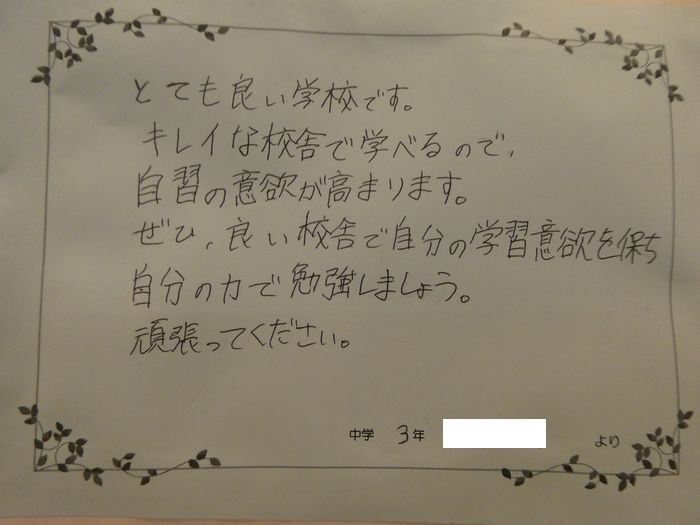 とても良い学校です。
キレイな校舎で学べるので、
自習の意欲が高まります。
ぜひ、良い校舎で自分の学習意欲を保ち
自分の力で勉強しましょう。
頑張ってください。
中学 3年 より